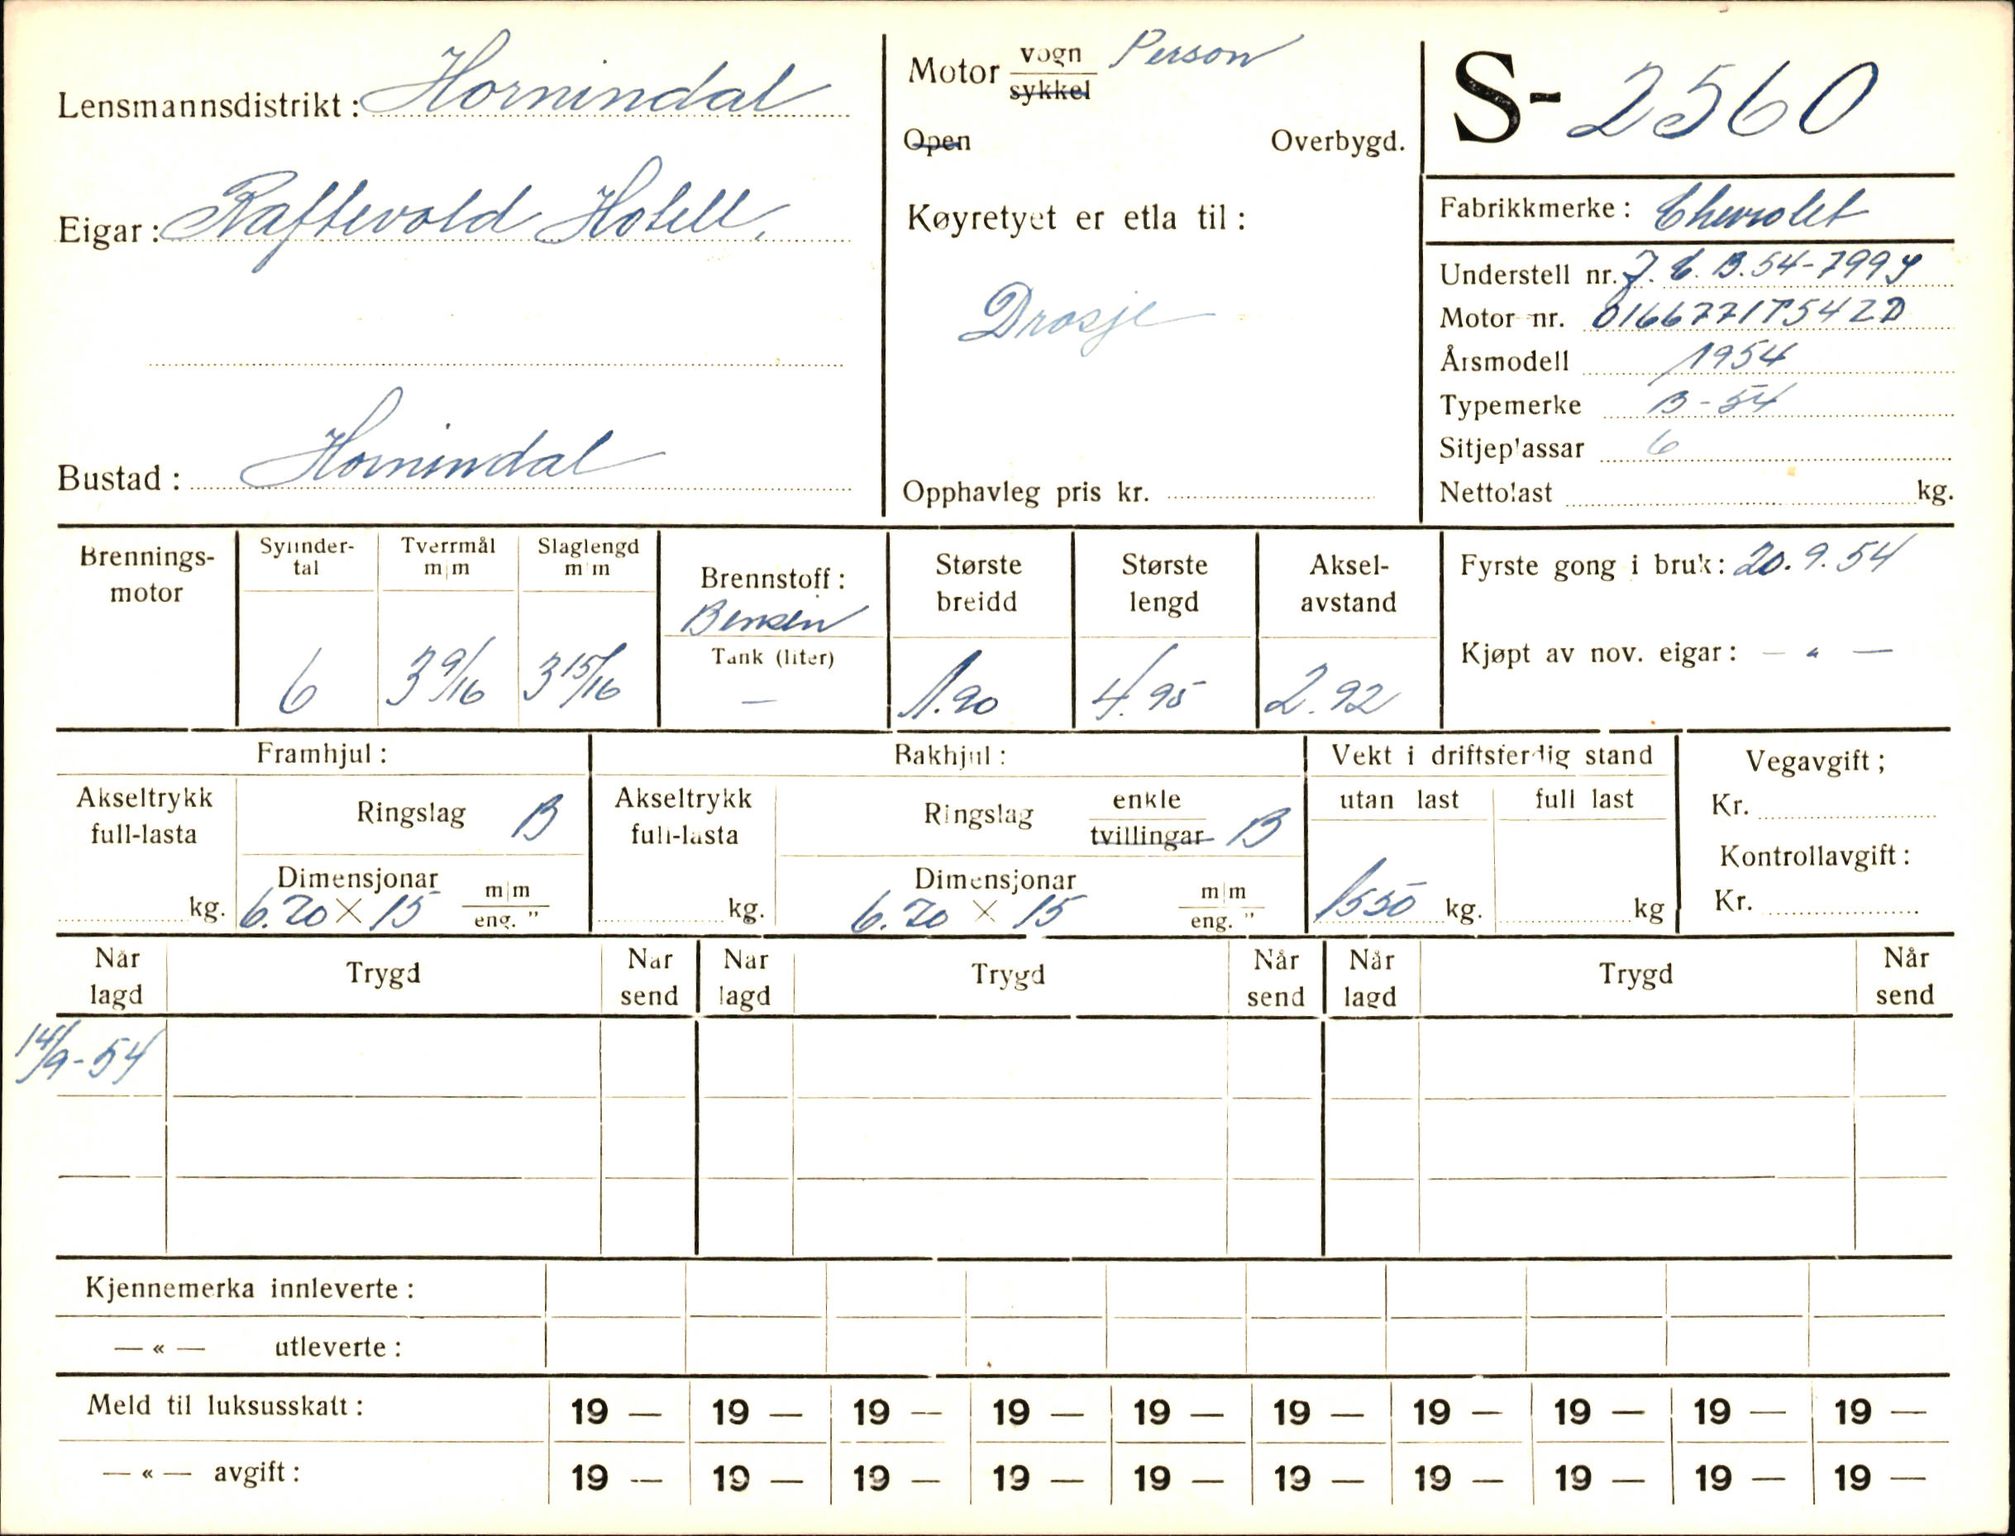 Lensmannsdistrikt: Hornindal
Eigar: Raftevold Hotell.
Bustad: Hornindal
Motor vogn Person
sykkel
Open Overbygd.
Køyretyet er etla til:
Drosje
Opphavleg pris kr.
S- 2560
Fabrikkmerke: Chevrolet
Understell nr. J.C.B.54-7999
Motor nr. 0166771T54ZD
Årsmodell 1954
Typemerke B-54
Sitjeplassar 6
Nettolast kg.
Brennings-
motor
Sylinder-
tal
6
Tverrmål
m|m
3 9/16
Slaglengd
m|m
3 15/16
Brennstoff:
Bensin
Tank (liter)
—
Største
breidd
1.90
Største
lengd
4.95
Aksel-
avstand
2.92
Fyrste gong i bruk: 20.9.54
Kjøpt av nov. eigar: — " —
Framhjul:
Akseltrykk
full-lasta
kg.
Ringslag B
Dimensjonar
6.70 × 15 m|m
eng. "
Bakhjul:
Akseltrykk
full-lasta
kg.
Ringslag enkle
tvillingar B
Dimensjonar
6.70 × 15 m|m
eng. "
Vekt i driftsferdig stand
utan last full last
1550 kg. kg
Vegavgift;
Kr.
Kontrollavgift:
Kr.
Når
lagd Trygd Når
send Når
lagd Trygd Når
send Når
lagd Trygd Når
send
14/9-54
Kjennemerka innleverte:
— « — utleverte:
Meld til luksusskatt: 19 — 19 — 19 — 19 — 19 — 19 — 19 — 19 — 19 — 19 —
— « — avgift: 19 — 19 — 19 — 19 — 19 — 19 — 19 — 19 — 19 — 19 —